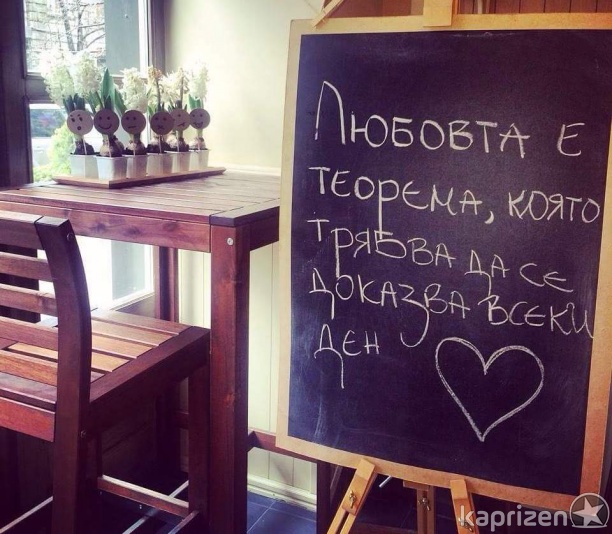 Любовта е
теорема, която
трябва да се
доказва всеки
ден
kaprizen